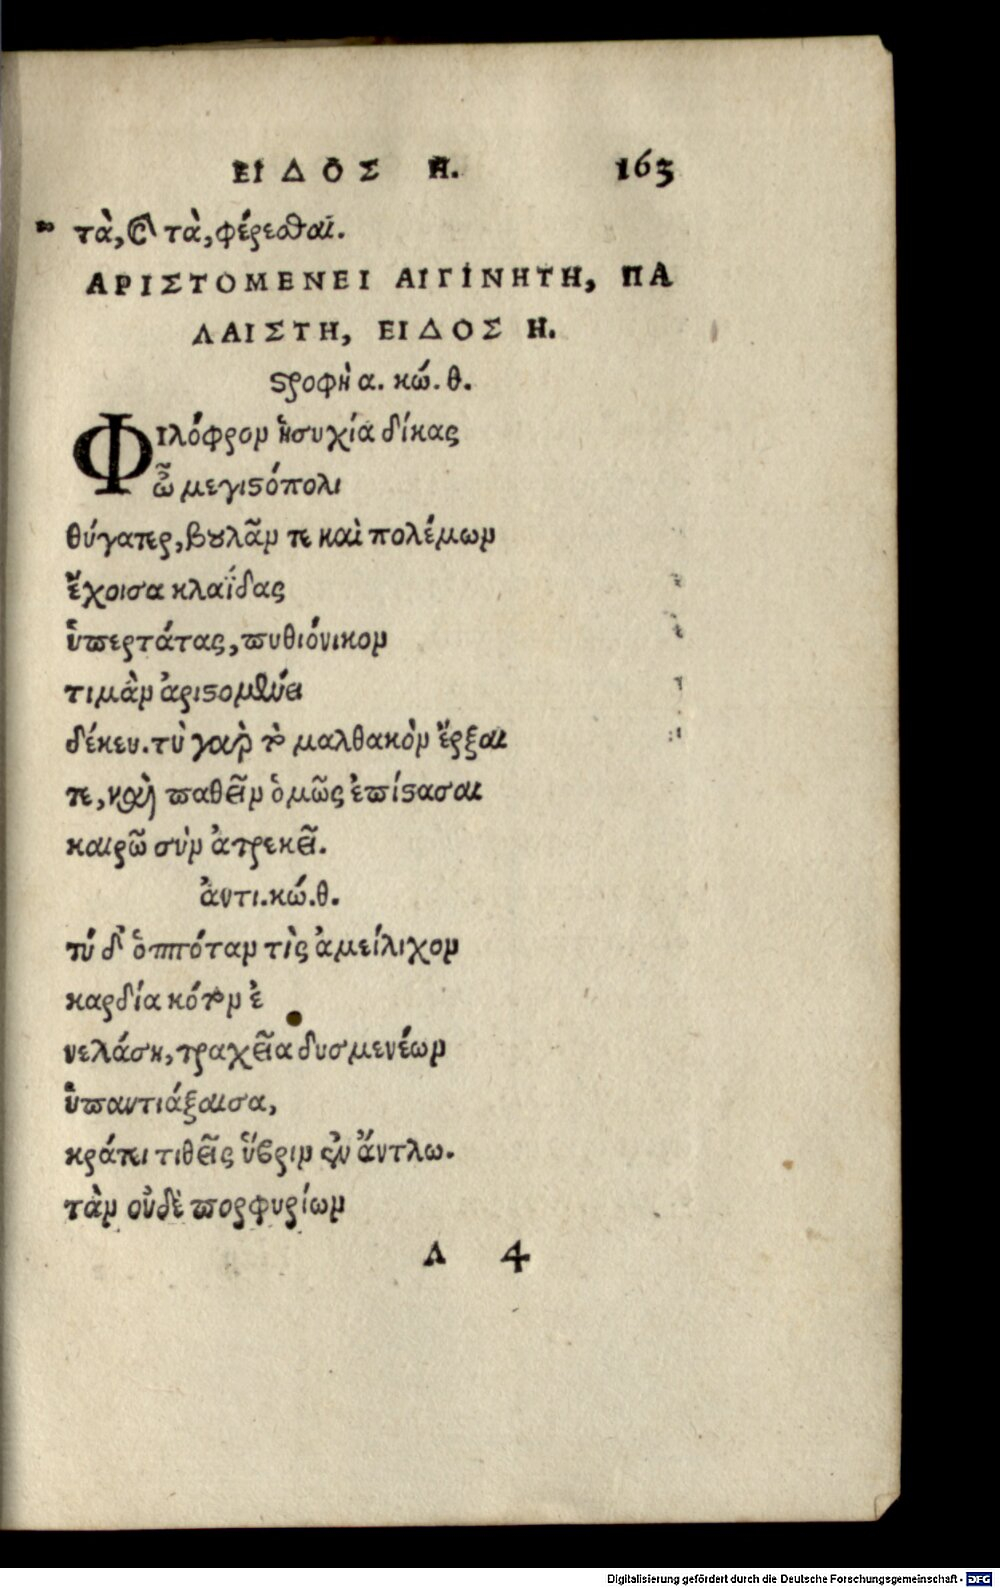 ΕΙΔΟΣ Η. 163
τὰ, καὶ τὰ, φέρεσθαι.
ΑΡΙΣΤΟΜΕΝΕΙ ΑΙΓΙΝΗΤΗ, ΠΑ
ΛΑΙΣΤΗ, ΕΙΔΟΣ Η.
ϛροφὴ α. κώ. θ.
Φιλόφρον ἡσυχία δίκας
ὦ μεγιϛόπολι
θύγατερ, βουλᾶν τε καὶ πολέμων
ἔχοισα κλαΐδας
ὑπερτάτας, πυθιόνικον
τιμὰν ἀριϛομένει
δέκευ. τὺ γαρ το μαλθακὸν ἔρξαι
τε, καὶ παθεῖν ὁμῶς ἐπίϛασαι
καιρῶ σὺν ἀτρεκεῖ.
ἀντι. κώ. θ.
τύ δ' ὁππόταν τὶς ἀμείλιχον
καρδία κότον ἐ
νελάση, τραχεῖα δυσμενέων
ὑπαντιάξαισα,
κράτει τιθεῖς ὕβριν ἐν ἄντλω.
τὰν οὐδὲ πορφυρίων
Λ 4
Digitalisierung gefördert durch die Deutsche Forschungsgemeinschaft - DFG